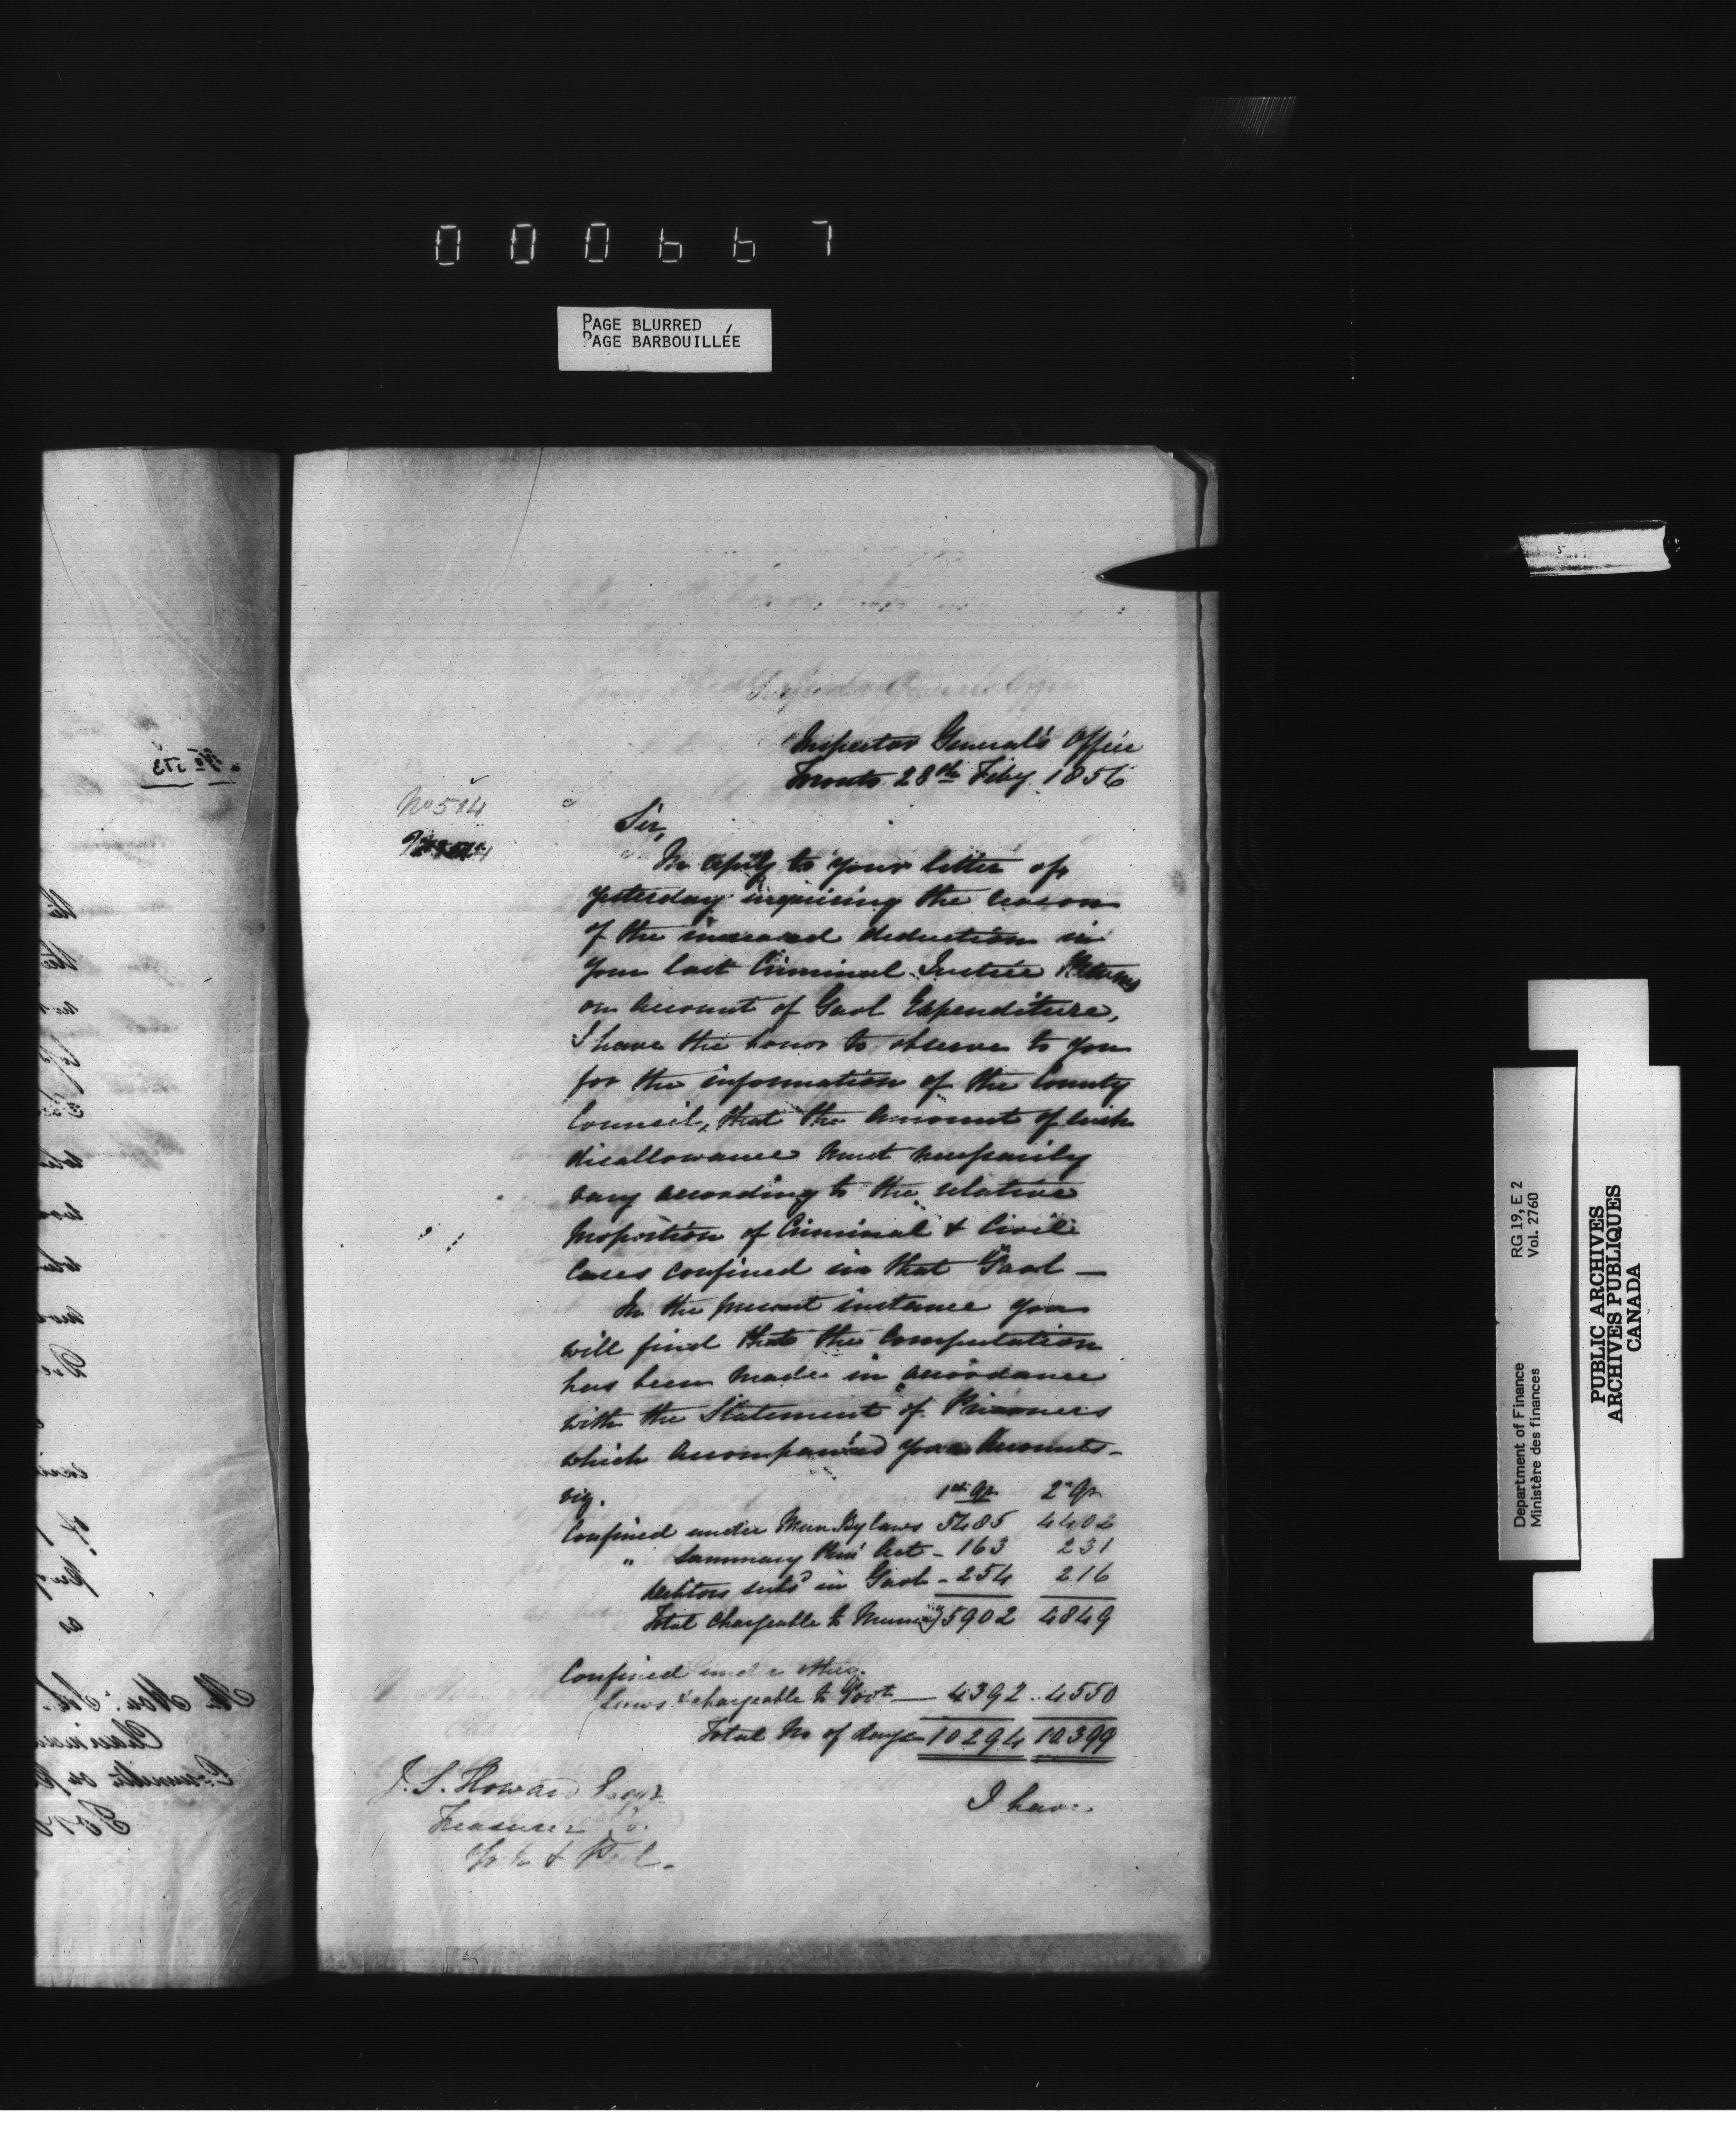 000667
PAGE BLURRED
PAGE BARBOUILLÉE
Inspector General's Office
Inspector General's Office
Toronto 28th Feby 1856
No 514
Sir,
In reply to your letter of
yesterday inquiring the reason
of the increased deduction in
your last Criminal Justice Returns
on account of Gaol Expenditure,
I have the honor to observe to you
for the information of the County
Council, that the amount of such
disallowance must necessarily
vary according to the relative
proportion of Criminal & Civil
Cases confined in that Gaol —
In the present instance you
will find that the Computation
has been made in accordance
with the Statement of Prisoners
which accompanied your Accounts —
viz. 1st Qr 2d Qr
Confined under Mun. By laws 5485 4402
" Summary Act - 163 231
Debtors in Gaol - 254 216
Total Chargeable to 5902 4849
Confined under other
Laws & chargeable to Govt — 4392 .. 4550
Total No of days 10294 10399
J. S. Howard Esqr
Treasurer Co.
York & Peel.
I have
No 513
RG 19, E 2
Vol. 2760
Department of Finance
Ministère des finances
PUBLIC ARCHIVES
ARCHIVES PUBLIQUES
CANADA